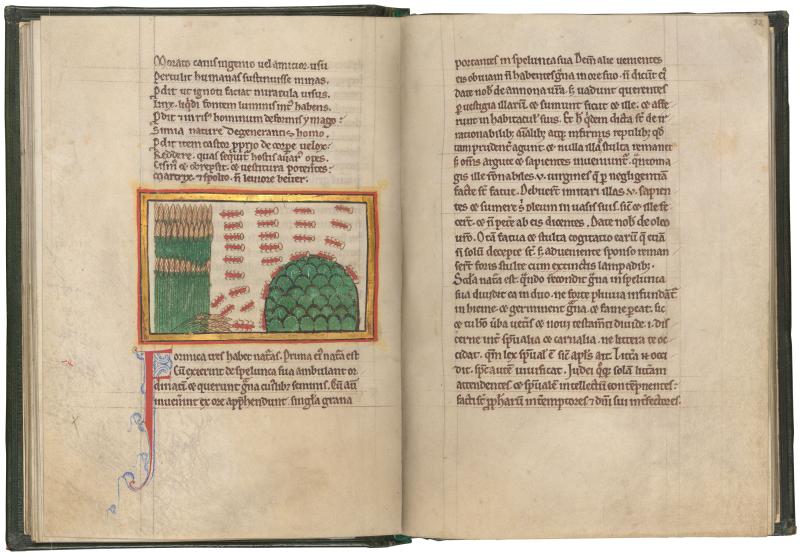 Morato canis ingenio vel amicior usu
Pertulit humanas sustinuisse minas.
Pdit ut ignoti faciat miracula visus.
Linx. liqidi fontem luminis int' habens.
Pdit & in risu hominum deformis ymago:
Simia nature degenerantis homo.
Pdit item castor pprio de corpe velox:
Reddere. quas sequnt' hostis avar' opes.
&
martyx. & spolio. ñ leviore bever.
Formica tres habet nat'as. Pruna ei' nat'a est
Cũ exierint de spelunca sua ambulant or
dinatĩ & querunt gna cuilib' seminis. Cũ aũt
invenĩnt ex ore apphendunt singla grana
32
portantes in spelunca sua Dem̃ alie venientes
eis obviam ñ habentes gna in ore suo. ñ dicũt eĩ
date nob' de annona vrã. s; vadunt querentes
p vestigia illarũ. & sumunt sicut & ille. & affe
runt in habitacul' suis. Et h' qdem dicta st' de ir
rationabilib; aĩalib; atq; infirmis reptilib; qd
tam prudent' agunt. & nulla illa stulta remane
s; oñis argute & sapientes inveniunt'. qñto ma
gis ille ronabiles .v. virgines q p negligentiã
facte st' fatue. Debuer̃t imitari illas .v. sapien
tes & sumere s' oleum in vasis suis. sic' & ille fe
cer̃t. & ñ pet'e ab eis dicentes. Date nob' de oleo
vr̃o. O tã fatua & stulta cogitatio earũ q etiã
ñ solũ decepte st'. s; adveniente sponso reman
ser̃t foris stulte cum extinctis lampadib;.
Scd'a nat'a est. qñdo recondit gna in spelunca
sua dividit ea in duo. ne forte pluvia infundãt'
in hieme & germinent gna. & fame pereat. sic
& tu hõ verba vet'is & novi testam̃ti divide .i. dis
cerne int' sp̃ualia & carnalia. ne littera te oc
cidat. qm̃ lex sp̃ual' ẽ sic' apl's ait. Litt'a ñ occi
dit. sp̃c autẽ vivificat. Judei q;p; solã litt'am
attendentes. & sp̃ualẽ intellectũ contẽpnentes:
facti st' pphar̃ũ int'emptores & dñi sui int'fectores.